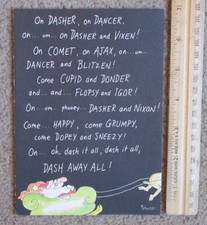 On DASHER, on DANCER,
on...um...on DASHER and VIXEN!
On COMET, on AJAX, on...um...
DANCER and BLITZEN!
Come CUPID and DONDER
and...and... FLOPSY and IGOR!
On...um...phooey... DASHER and NIXON!
Come... HAPPY, come GRUMPY,
come DOPEY and SNEEZY!
On... oh, dash it all, dash it all,
DASH AWAY ALL!